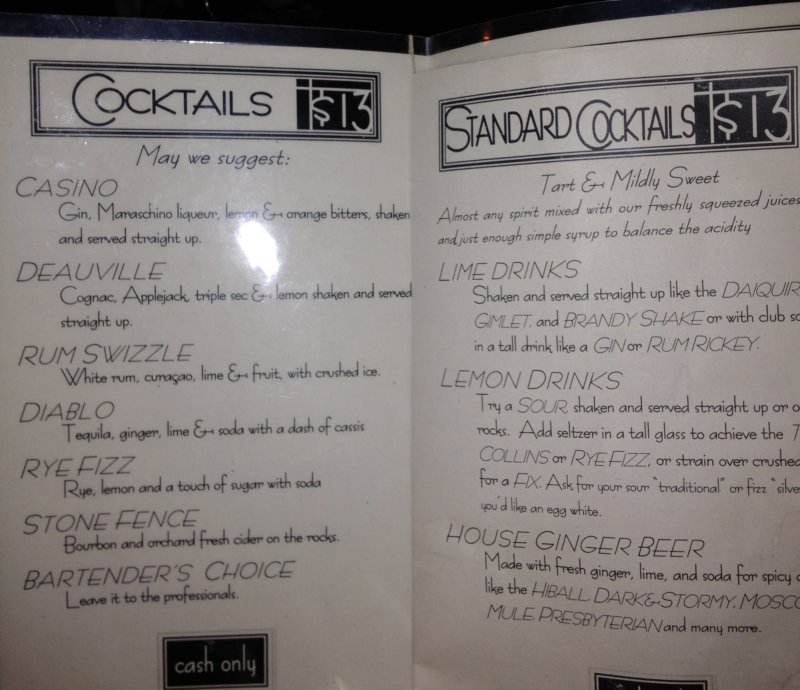 COCKTAILS $13
May we suggest:
CASINO
Gin, Maraschino liqueur, lemon & orange bitters, shaken
and served straight up.
DEAUVILLE
Cognac, Applejack, triple sec & lemon shaken and served
straight up.
RUM SWIZZLE
White rum, curaçao, lime & fruit, with crushed ice.
DIABLO
Tequila, ginger, lime & soda with a dash of cassis
RYE FIZZ
Rye, lemon and a touch of sugar with soda
STONE FENCE
Bourbon and orchard fresh cider on the rocks.
BARTENDER'S CHOICE
Leave it to the professionals.
cash only
STANDARD COCKTAILS $13
Tart & Mildly Sweet
Almost any spirit mixed with our freshly squeezed juices
and just enough simple syrup to balance the acidity
LIME DRINKS
Shaken and served straight up like the DAIQUIR
GIMLET, and BRANDY SHAKE or with club so
in a tall drink like a GIN or RUM RICKEY.
LEMON DRINKS
Try a SOUR, shaken and served straight up or o
rocks. Add seltzer in a tall glass to achieve the T
COLLINS or RYE FIZZ, or strain over crushed
for a FIX. Ask for your sour "traditional" or fizz "silve
you'd like an egg white.
HOUSE GINGER BEER
Made with fresh ginger, lime, and soda for spicy
like the HIBALL, DARK & STORMY, MOSCO
MULE, PRESBYTERIAN and many more.